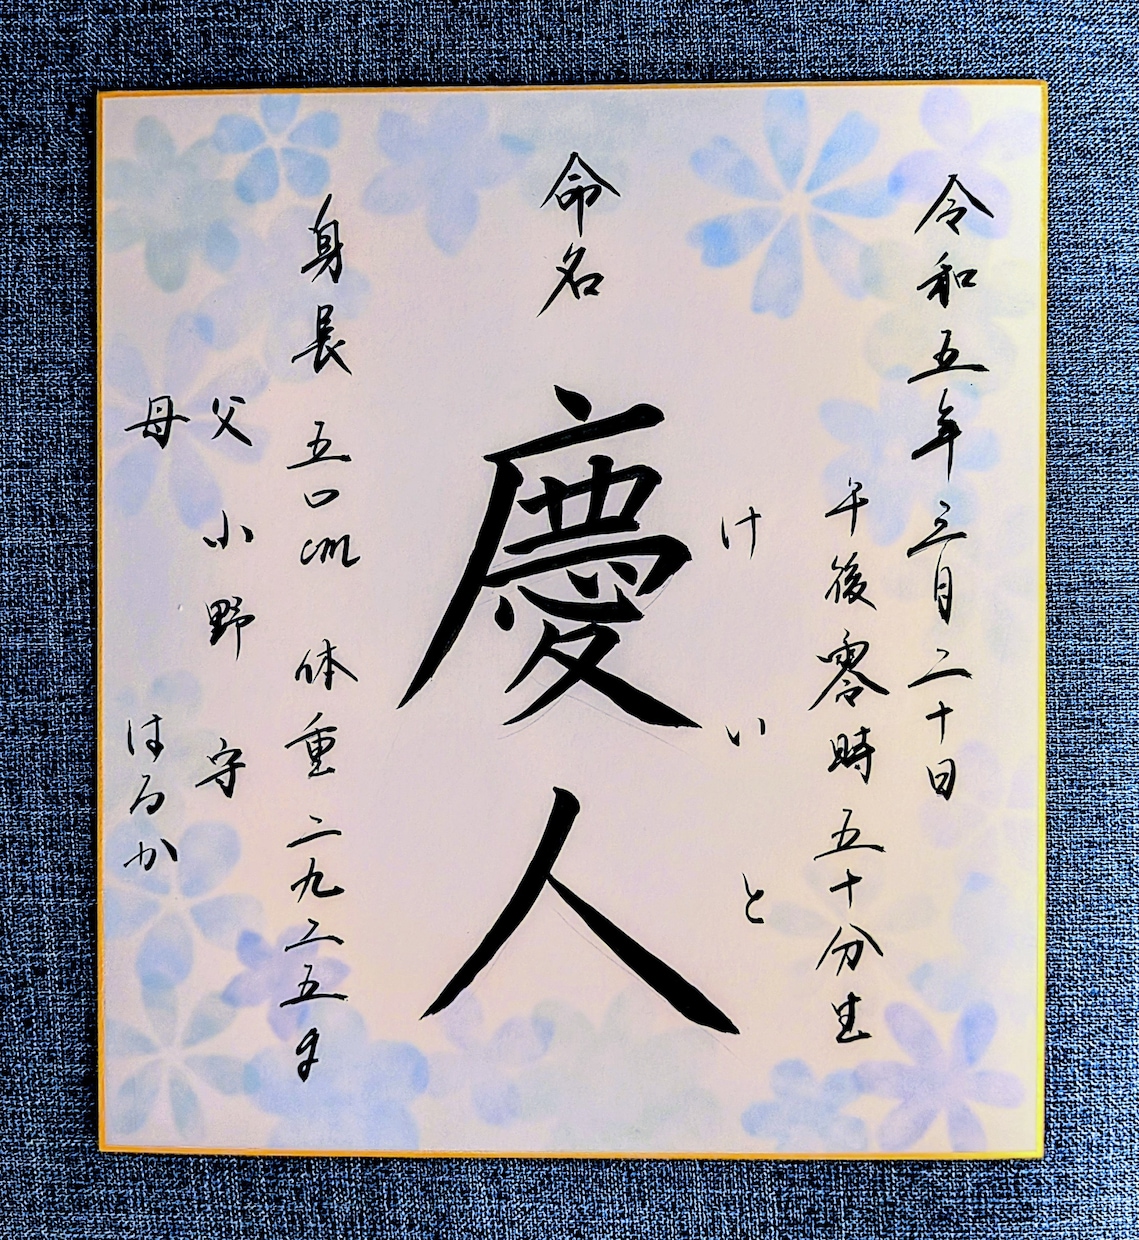 令和五年三月二十日
午後零時五十分生
けいと
命名
慶人
身長 五〇cm 体重 二九二五g
父 小野 守
母 はるか